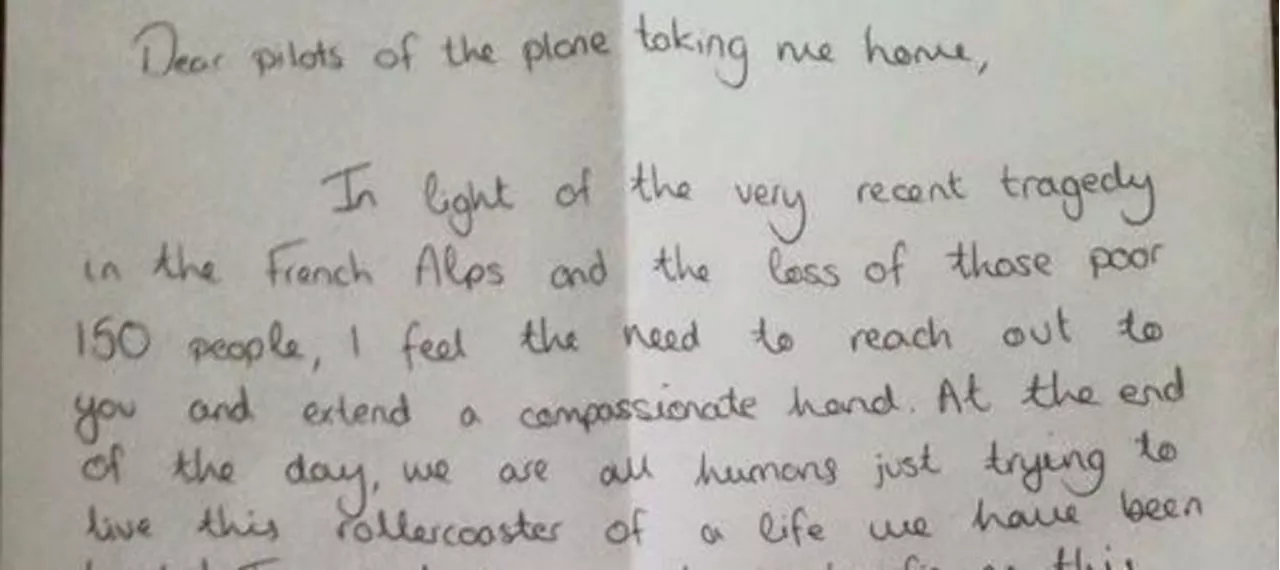 Dear pilots of the plane taking me home,
In light of the very recent tragedy
in the French Alps and the loss of those poor
150 people, I feel the need to reach out to
you and extend a compassionate hand. At the end
of the day, we are all humans just trying to
live this rollercoaster of a life we have been
this